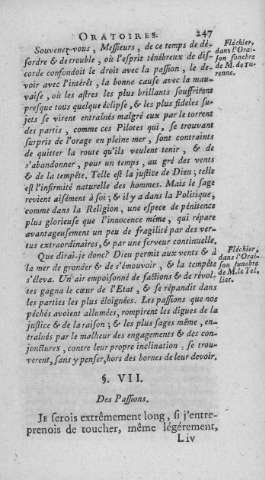 ORATOIRES. 247
Souvenez-vous, Messieurs, de ce temps de dé-
sordre & de trouble, où l'esprit ténébreux de dis-
corde confondoit le droit avec la passion, le de-
voir avec l'intérêt, la bonne cause avec la mau-
vaise, où les astres les plus brillants souffrirent
presque tous quelque éclipse, & les plus fideles su-
jets se virent entraînés malgré eux par le torrent
des partis, comme ces Pilotes qui, se trouvant
surpris de l'orage en pleine mer, sont contraints
de quitter la route qu'ils veulent tenir, & de
s'abandonner, pour un temps, au gré des vents
& de la tempête. Telle est la justice de Dieu; telle
est l'infirmité naturelle des hommes. Mais le sage
revient aisément à soi; & il y a dans la Politique,
comme dans la Religion, une espece de pénitence
plus glorieuse que l'innocence même, qui répare
avantageusement un peu de fragilité par des ver-
tus extraordinaires, & par une ferveur continuelle.
Fléchier,
dans l'Orai-
son funebre
de M. de Tu-
renne.
Que dirai-je donc? Dieu permit aux vents &
à la mer de gronder & de s'émouvoir, & la tempête
s'éleva. Un air empoisonné de factions & de révol-
tes gagna le cœur de l'Etat, & se répandit dans
les parties les plus éloignées. Les passions que nos
péchés avoient allumées, rompirent les digues de la
justice & de la raison; & les plus sages même, en-
traînés par le malheur des engagements & des con-
jonctures, contre leur propre inclination, se trou-
verent, sans y penser, hors des bornes de leur devoir.
Fléchier,
dans l'Orai-
son funebre
de M. le Tel-
lier.
§. VII.
Des Passions.
JE serois extrêmement long, si j'entre-
prenois de toucher, même légérement,
Liv